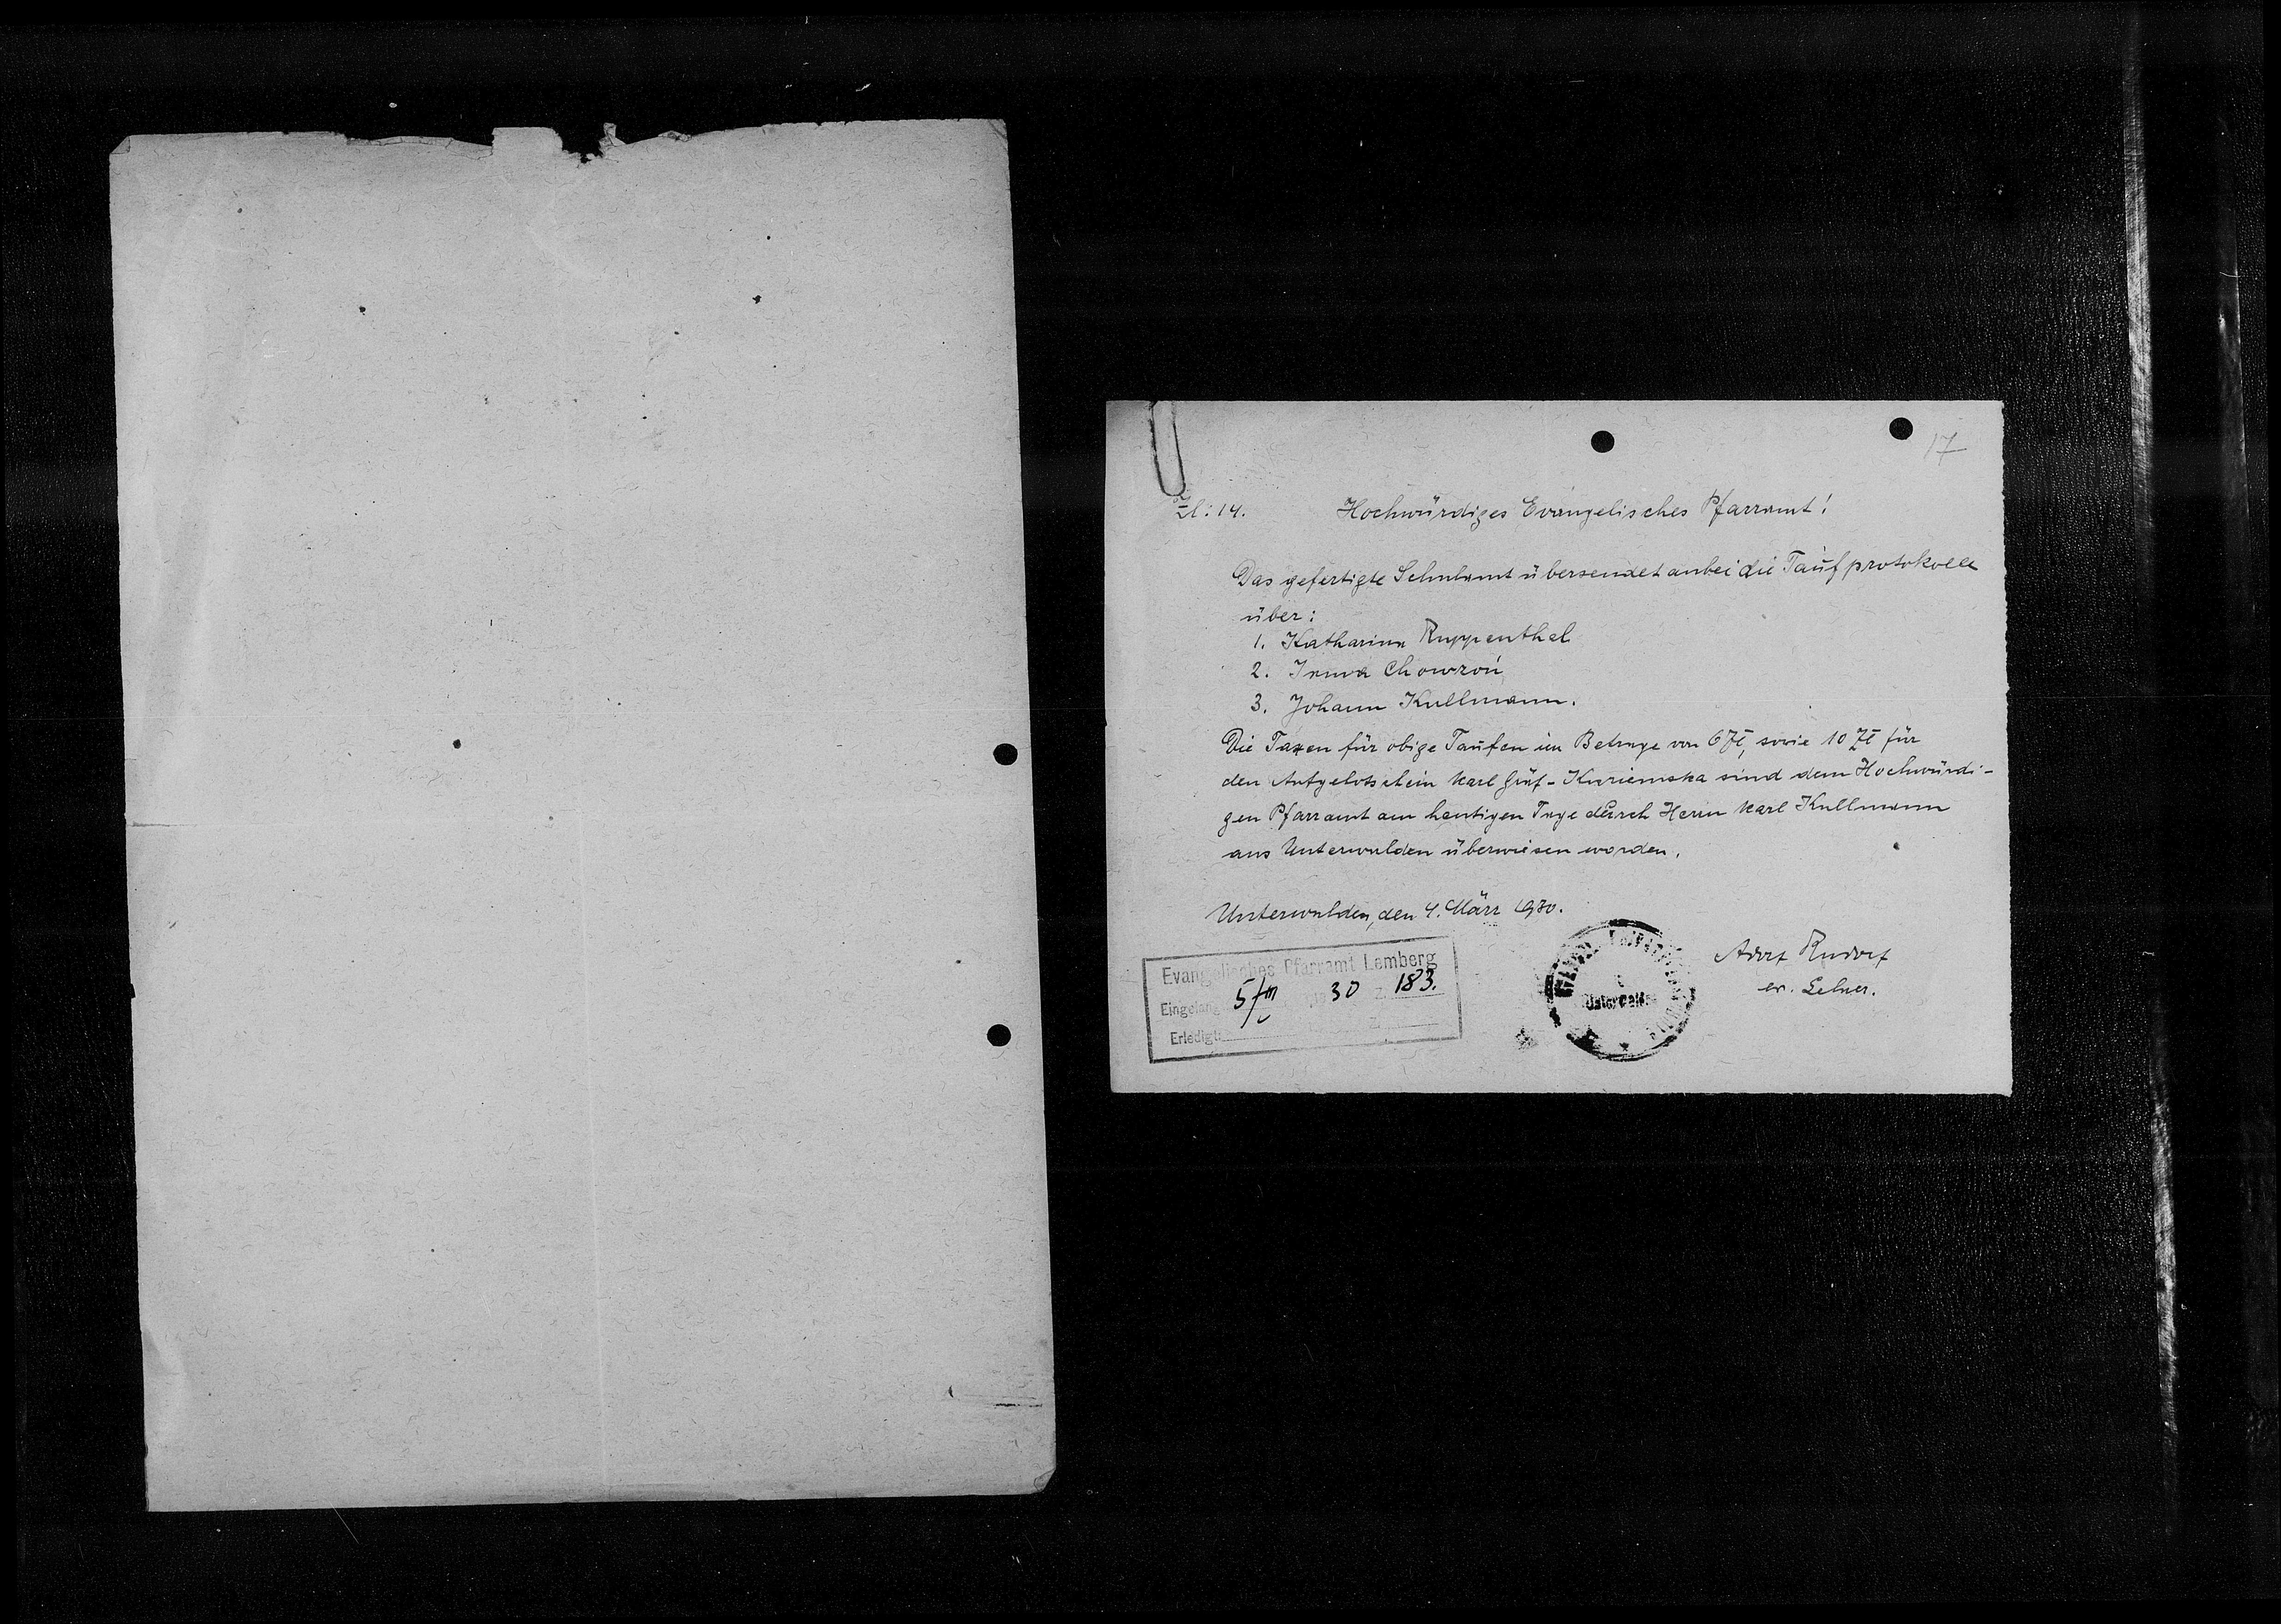 17
Zl: 14. Hochwürdiges Evangelisches Pfarramt!
Das gefertigte Schulamt übersendet anbei die Taufprotokolle
über:
1. Katharina Ruppenthal
2. Irma Chowzoń
3. Johann Kullmann.
Die Taxen für obige Taufen im Betrage von 6 Zł, sowie 10 Zł für
den Aufgebotschein Karl Gräf - sind dem Hochwürdi-
gen Pfarramt am heutigen Tage durch Herrn Karl Kullmann
aus Unterwalden überwiesen worden.
Unterwalden, den 4. März 1930.
Evangelisches Pfarramt Lemberg
Eingelangt 5/III 30 Z. 183.
Erledigt Z.
Adolf Rudolf
ev. Lehrer.